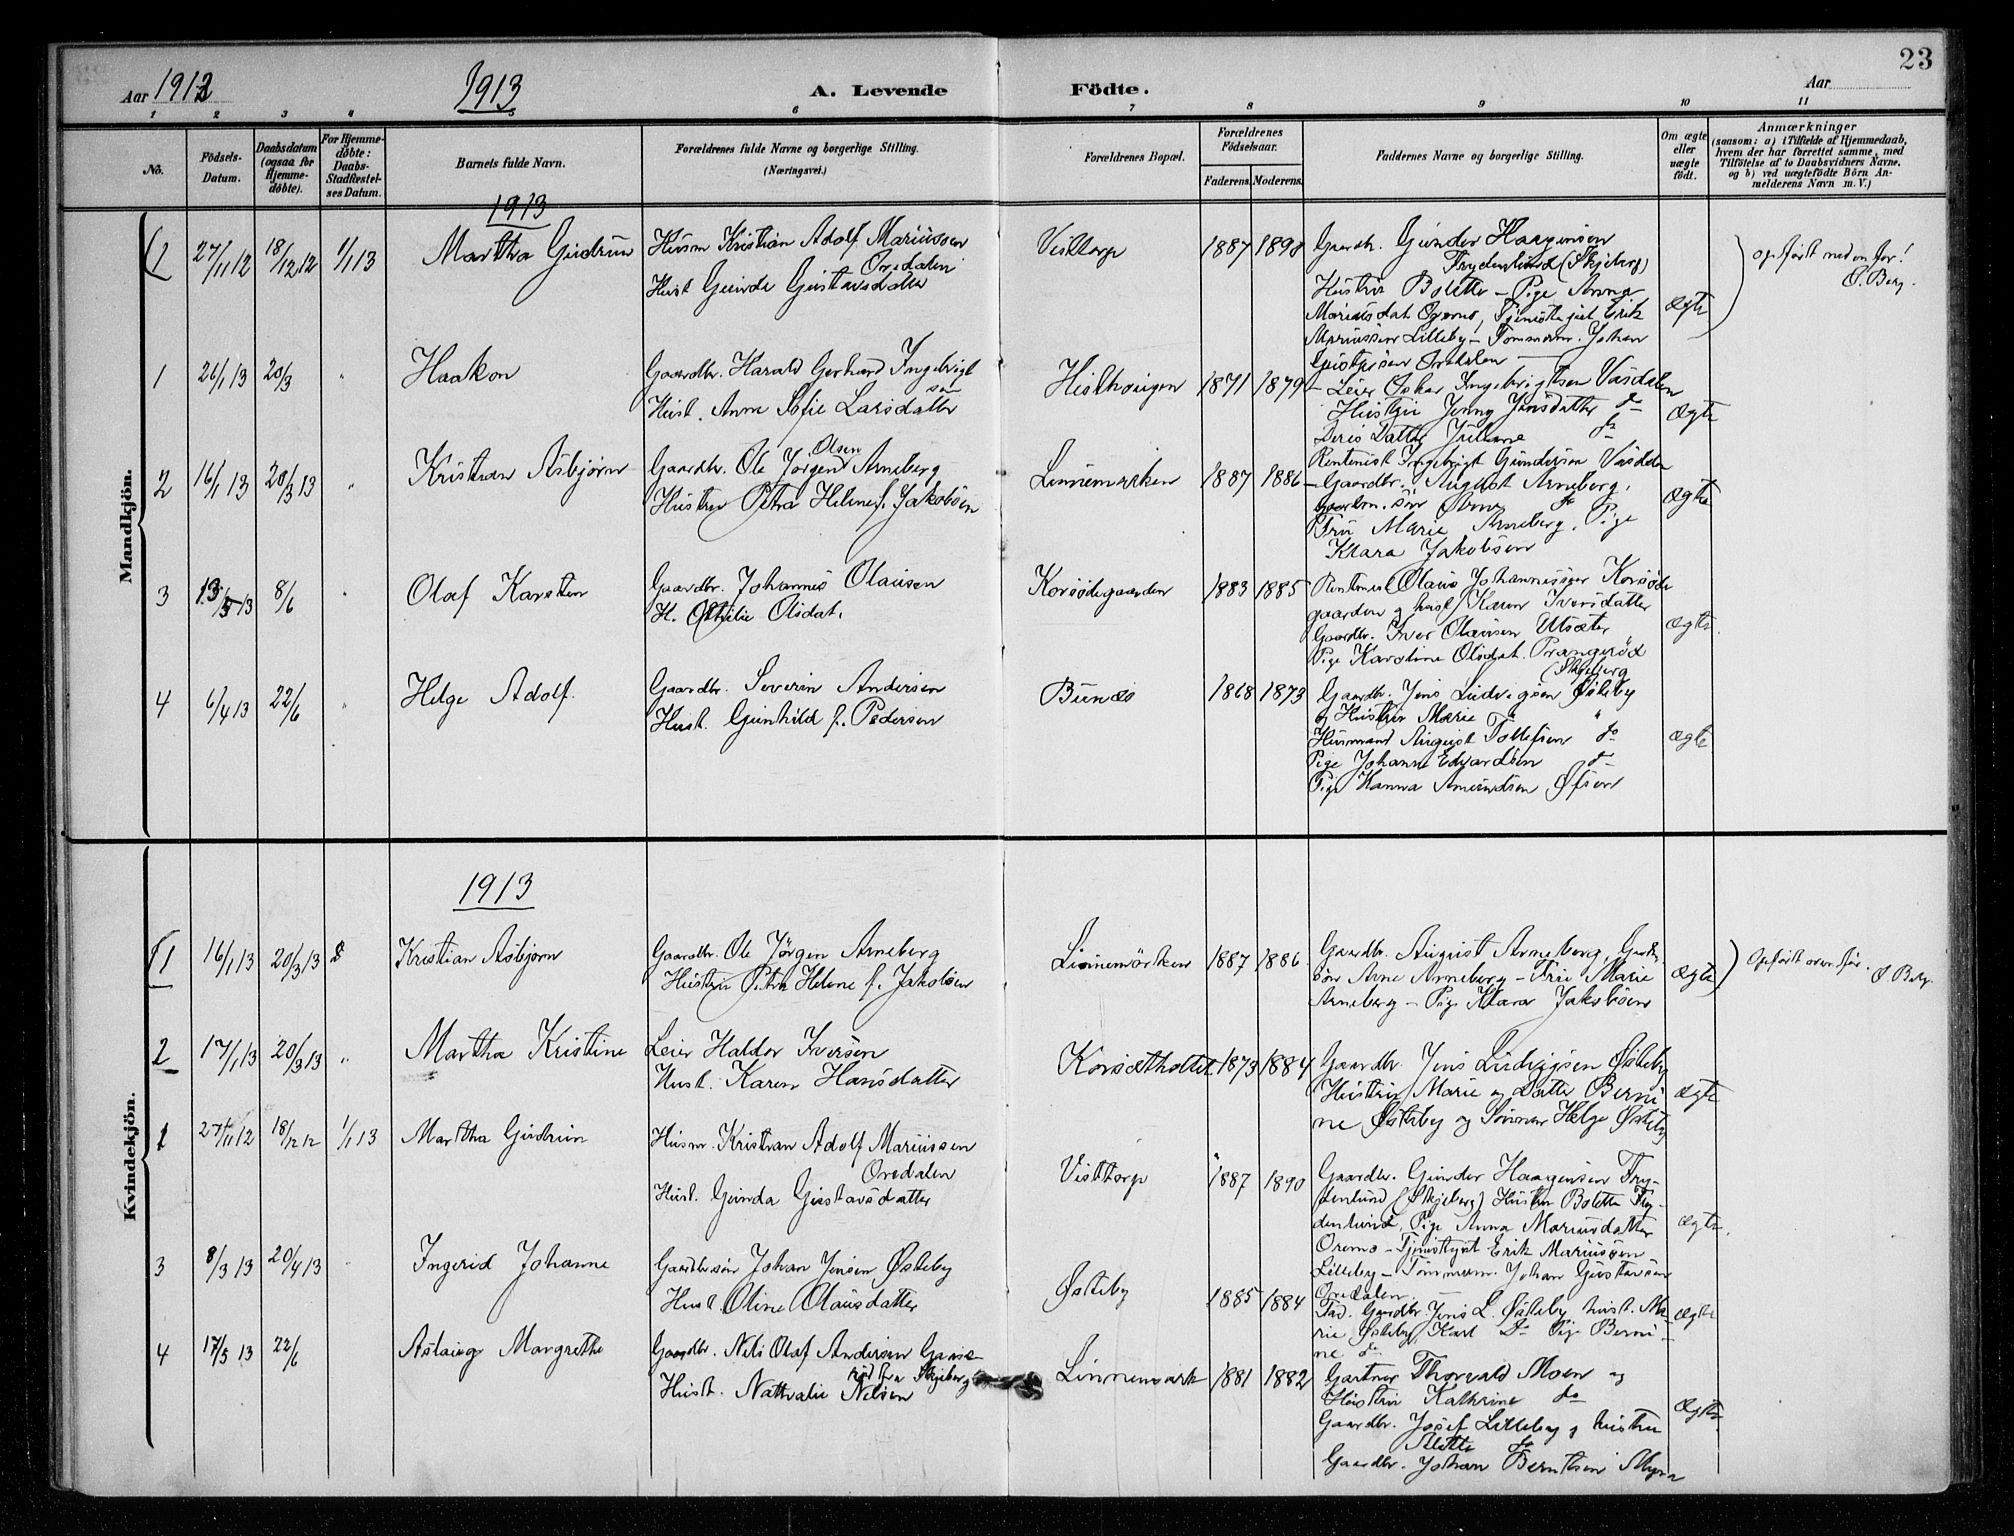 23
Aar 1912
1913
A. Levende Födte.
Aar
1 2 3 4 6 7 8 9 10 11
No.
Födsels-Datum.
Daabsdatum (ogsaa for Hjemme-döbte).
For Hjemme-döbte: Daabs-Stadfæstel-ses Datum.
Barnets fulde Navn.
Forældrenes fulde Navne og borgerlige Stilling. (Næringsvei.)
Forældrenes Bopæl.
Forældrenes Födselsaar.
Faderens. Moderens.
Faddernes Navne og borgerlige Stilling.
Om ægte eller uægte födt.
Anmærkninger
(saasom: a) i Tilfælde af Hjemmedaab, hvem der har forrettet samme, med Tilföielse af to Daabsvidners Navne, og b) ved uægtefödte Börn Anmelderens Navn m. V.)
Mandkjön.
1913
(1 27/11 12 18/12 12 1/1 13 Martha Gudrun
Husm Kristian Adolf Mariussen
Oredalen
Hust Gunda Gustavsdatter
Visttorp 1887 1890
Gaardb. Gunder Haagensen
Frydenlund (Skjeberg)
Hustru Bolette – Pige Anna
Mariusdat Oremo, Tjenestegut Erik
Mariussen Lilleby – Tømmerm. Johan
Gustavsen Oredalen –
ægte
opført nedenfor!
O. Berg.
1 26/1 13 20/3 " Haakon
Gaardbr. Harald Gerhard Ingebrigt
sen
Hust. Anna Sofie Larsdatter
1871 1879
– Leier Oskar Ingebrigtsen Vasdalen
Hustru Jenny Jensdatter do
Deris Datter Juliane do
Rentenist Ingebrigt Gundersen Vasdalen
Ægte
2 16/1 13 20/3 13 " Kristian Asbjørn
Gaardbr. Ole Jørgen Olsen Arneberg
Hustru Petra Helene f. Jakobsen
Linnemarken 1887 1886
– Gaardbr. August Arneberg,
gaardm. søn Arne do
Fru Marie Arneberg, Pige
Klara Jakobsen
Ægte
3 13/5 13 8/6 " Olaf Karsten
Gaardbr. Johannes Olausen
H. Othilie Olsdat.
Korsödegaarden 1883 1885
Rentenist Olaus Johannessen Korsöde
gaarden og hust Karen Iversdatter
Gaardbr. Iver Olausen Utsæter
Pige Karoline Olsdat. Prangeröd
(Skjeberg
ægte.
4 6/4 13 22/6 " Helge Adolf.
Gaardbr. Severin Andersen
Hust. Gunhild f. Pedersen
Bunæs 1868 1873
Gaardbr. Jens Ludvigsen Østeby
og Hustru Marie "
Husmand August Tollefsen do
Pige Johanne Edvardsen do
Pige Hanna Amundsen
ægte
Kvindekjön.
1913
(1 16/1 13 20/3 13 Kristian Asbjørn
Gaardbr. Ole Jørgen Arneberg
Hustru Petra Helene f. Jakobsen
Linnemarken 1887 1886
Gaardbr. August Arneberg, Gaardbr
søn Arne Arneberg – Fru Marie
Arneberg – Pige Klara Jakobsen
ægte
Opført ovenfor.
O Berg.
2 17/1 13 20/3 13 " Martha Kristine
Leier Haldor Iversen
Hust. Karen Hansdatter
Korsetholtet 1873 1884
Gaardbr. Jens Ludvigsen Østeby
Hustru Marie og Datter Berni
ne Østeby og Sønnen Helge Østeby
ægte
1 27/11 12 18/12 12 1/1 13 Martha Gudrun
Husm. Kristian Adolf Mariussen
Oredalen
Hust. Gunda Gustavsdatter
Visttorp 1887 1890
Gaardbr. Gunder Haagensen Fry-
denlund (Skjeberg) Hustru Bolette Fry-
denlund, Pige Anna Mariusdatter
Oremo – Tjenestegut Erik Mariussen
Lilleby – Tømmerm. Johan Gustavsen
Oredalen
ægte.
3 8/3 13 20/4 13 " Ingerid Johanne
Gaardbrsøn Johan Jensen Østeby
Hust. Oline Olausdatter
Østeby 1885 1884
Fad. Gaardbr. Jens L. Østeby hust. Ma-
rie Østeby, Karl Do Pige Berni-
ne do
ægte
4 17/5 13 22/6 Aslaug Margrethe
Gaardbr. Nils Olaf Andersen
Skjeberg
Hust. Nathalie Nilsen
Linnemark 1881 1882
Gartner Thorvald Moen og
Hustru Kathrine do
Gaardbr. Josef Lilleby og hustru
Alette do
Gaardbr. Johan Berntsen Myra
Ægte